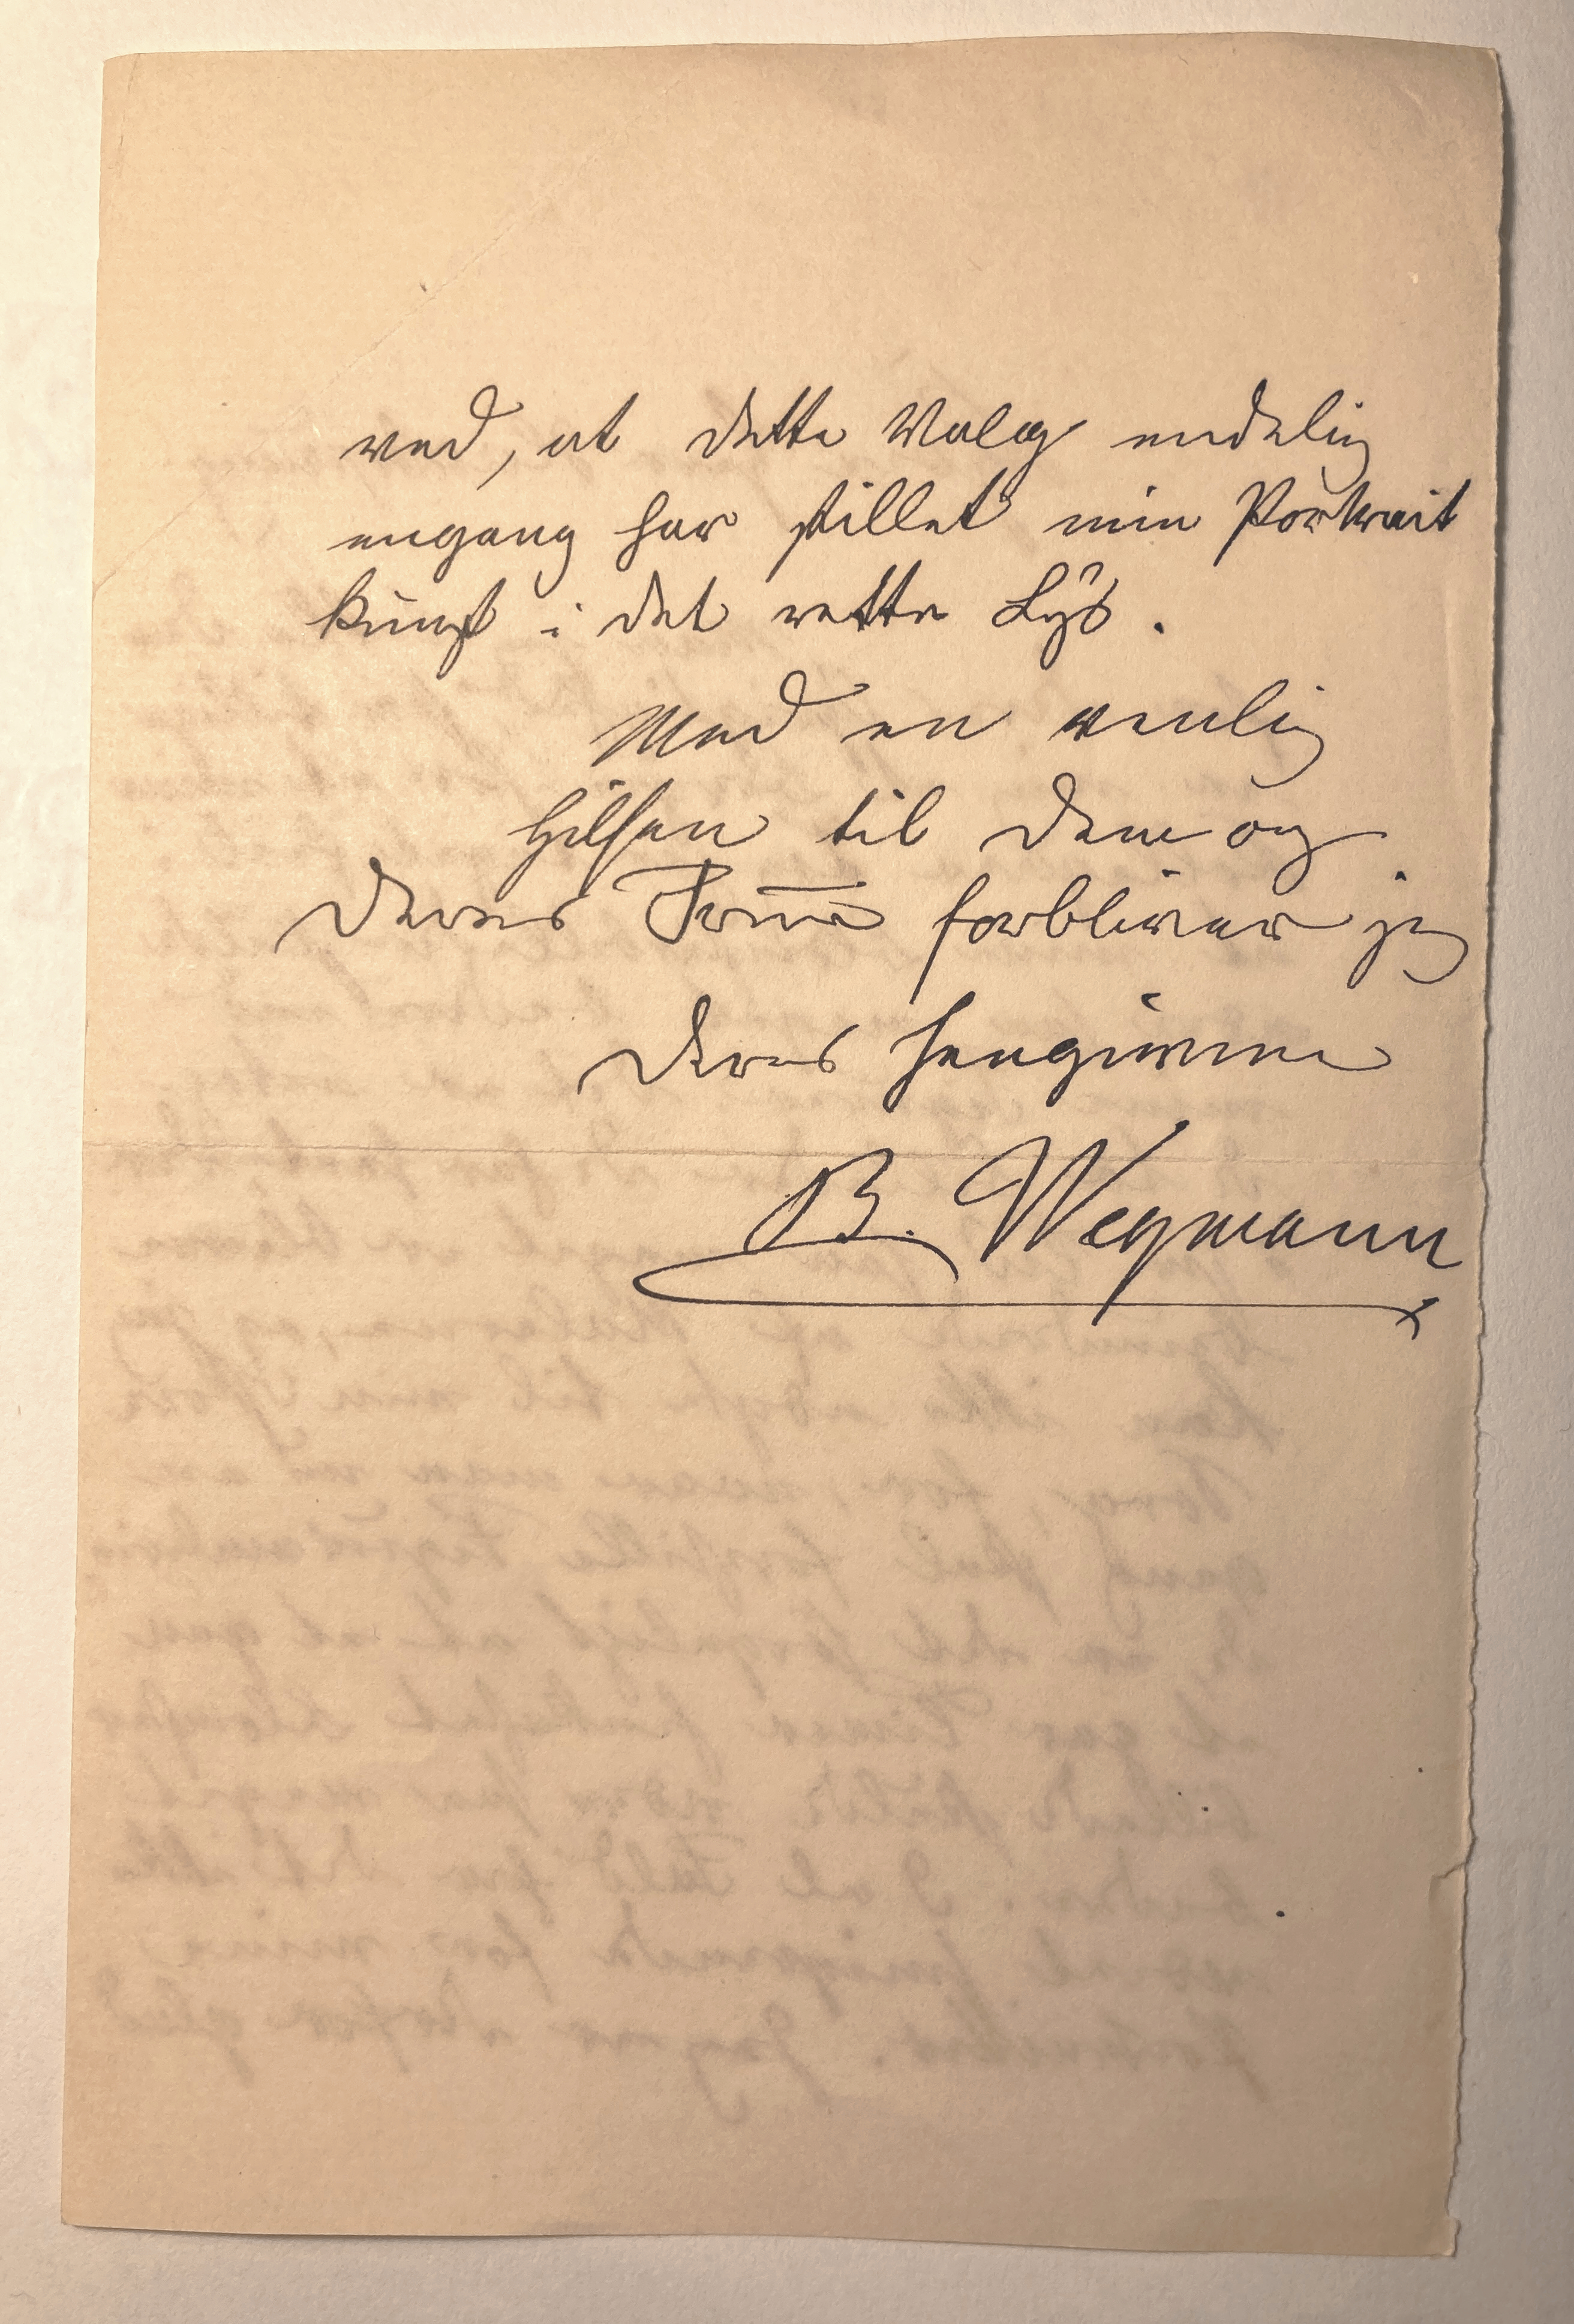 ved, at dette Valg endelig
engang har stillet min Portrait
kunst i det rette Lys.
Med en venlig
Hilsen til Dem og
Deres Frue forbliver jeg
Deres hengivne
B. Wegmann